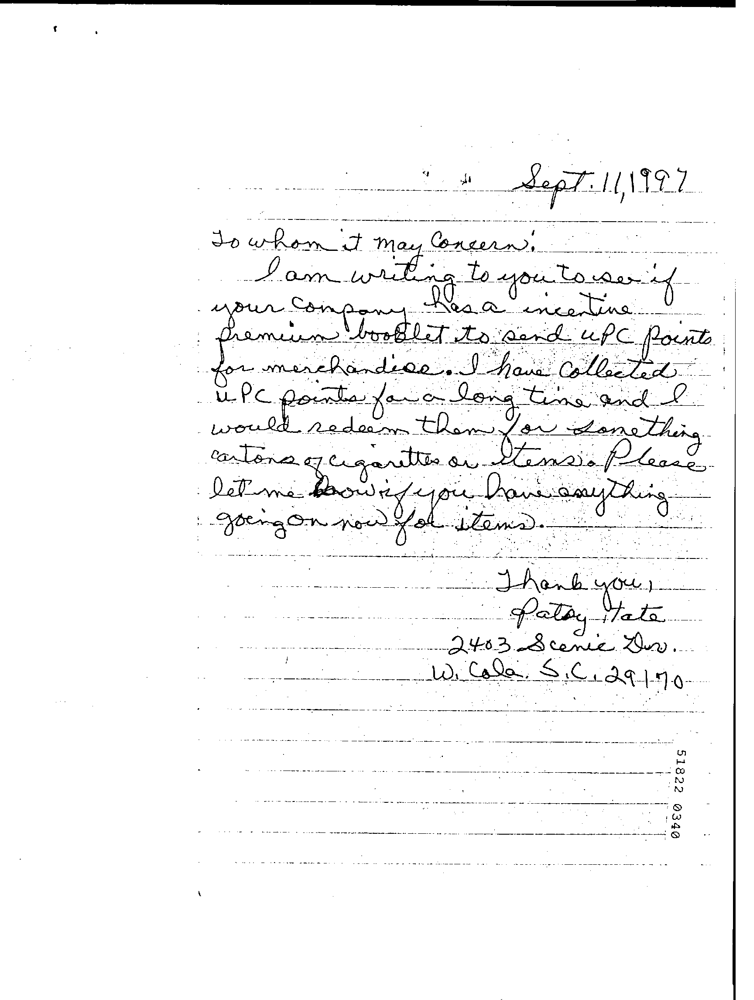 Sept. 11, 1997
To whom it may Concern:
I am writing to you to see if
your company has a incentive
premium booklet to send UPC points
for merchandise. I have collected
UPC points for a long time and I
would redeem them for something
cartons of cigarettes or items. Please
let me know if you have anything
going on now for items.
Thank you,
Patsy Tate
2403 Scenic Dr.
W. Cola. S.C. 29170
51822 0340